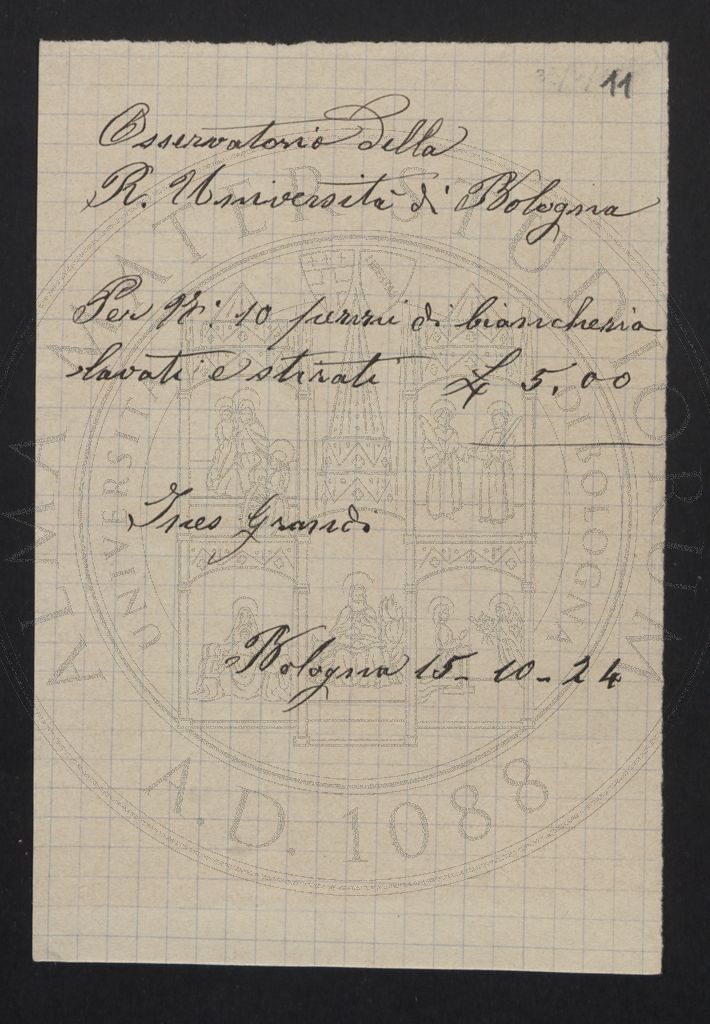 11
Osservatorio della
R. Università di Bologna
Per N: 10 pezzi di biancheria
lavati e stirati £ 5.00
Ines Grandi
Bologna 15-10-24
ALMA MATER STUDIORUM
UNIVERSITÀ DI BOLOGNA
LIBERTAS
A.D. 1088